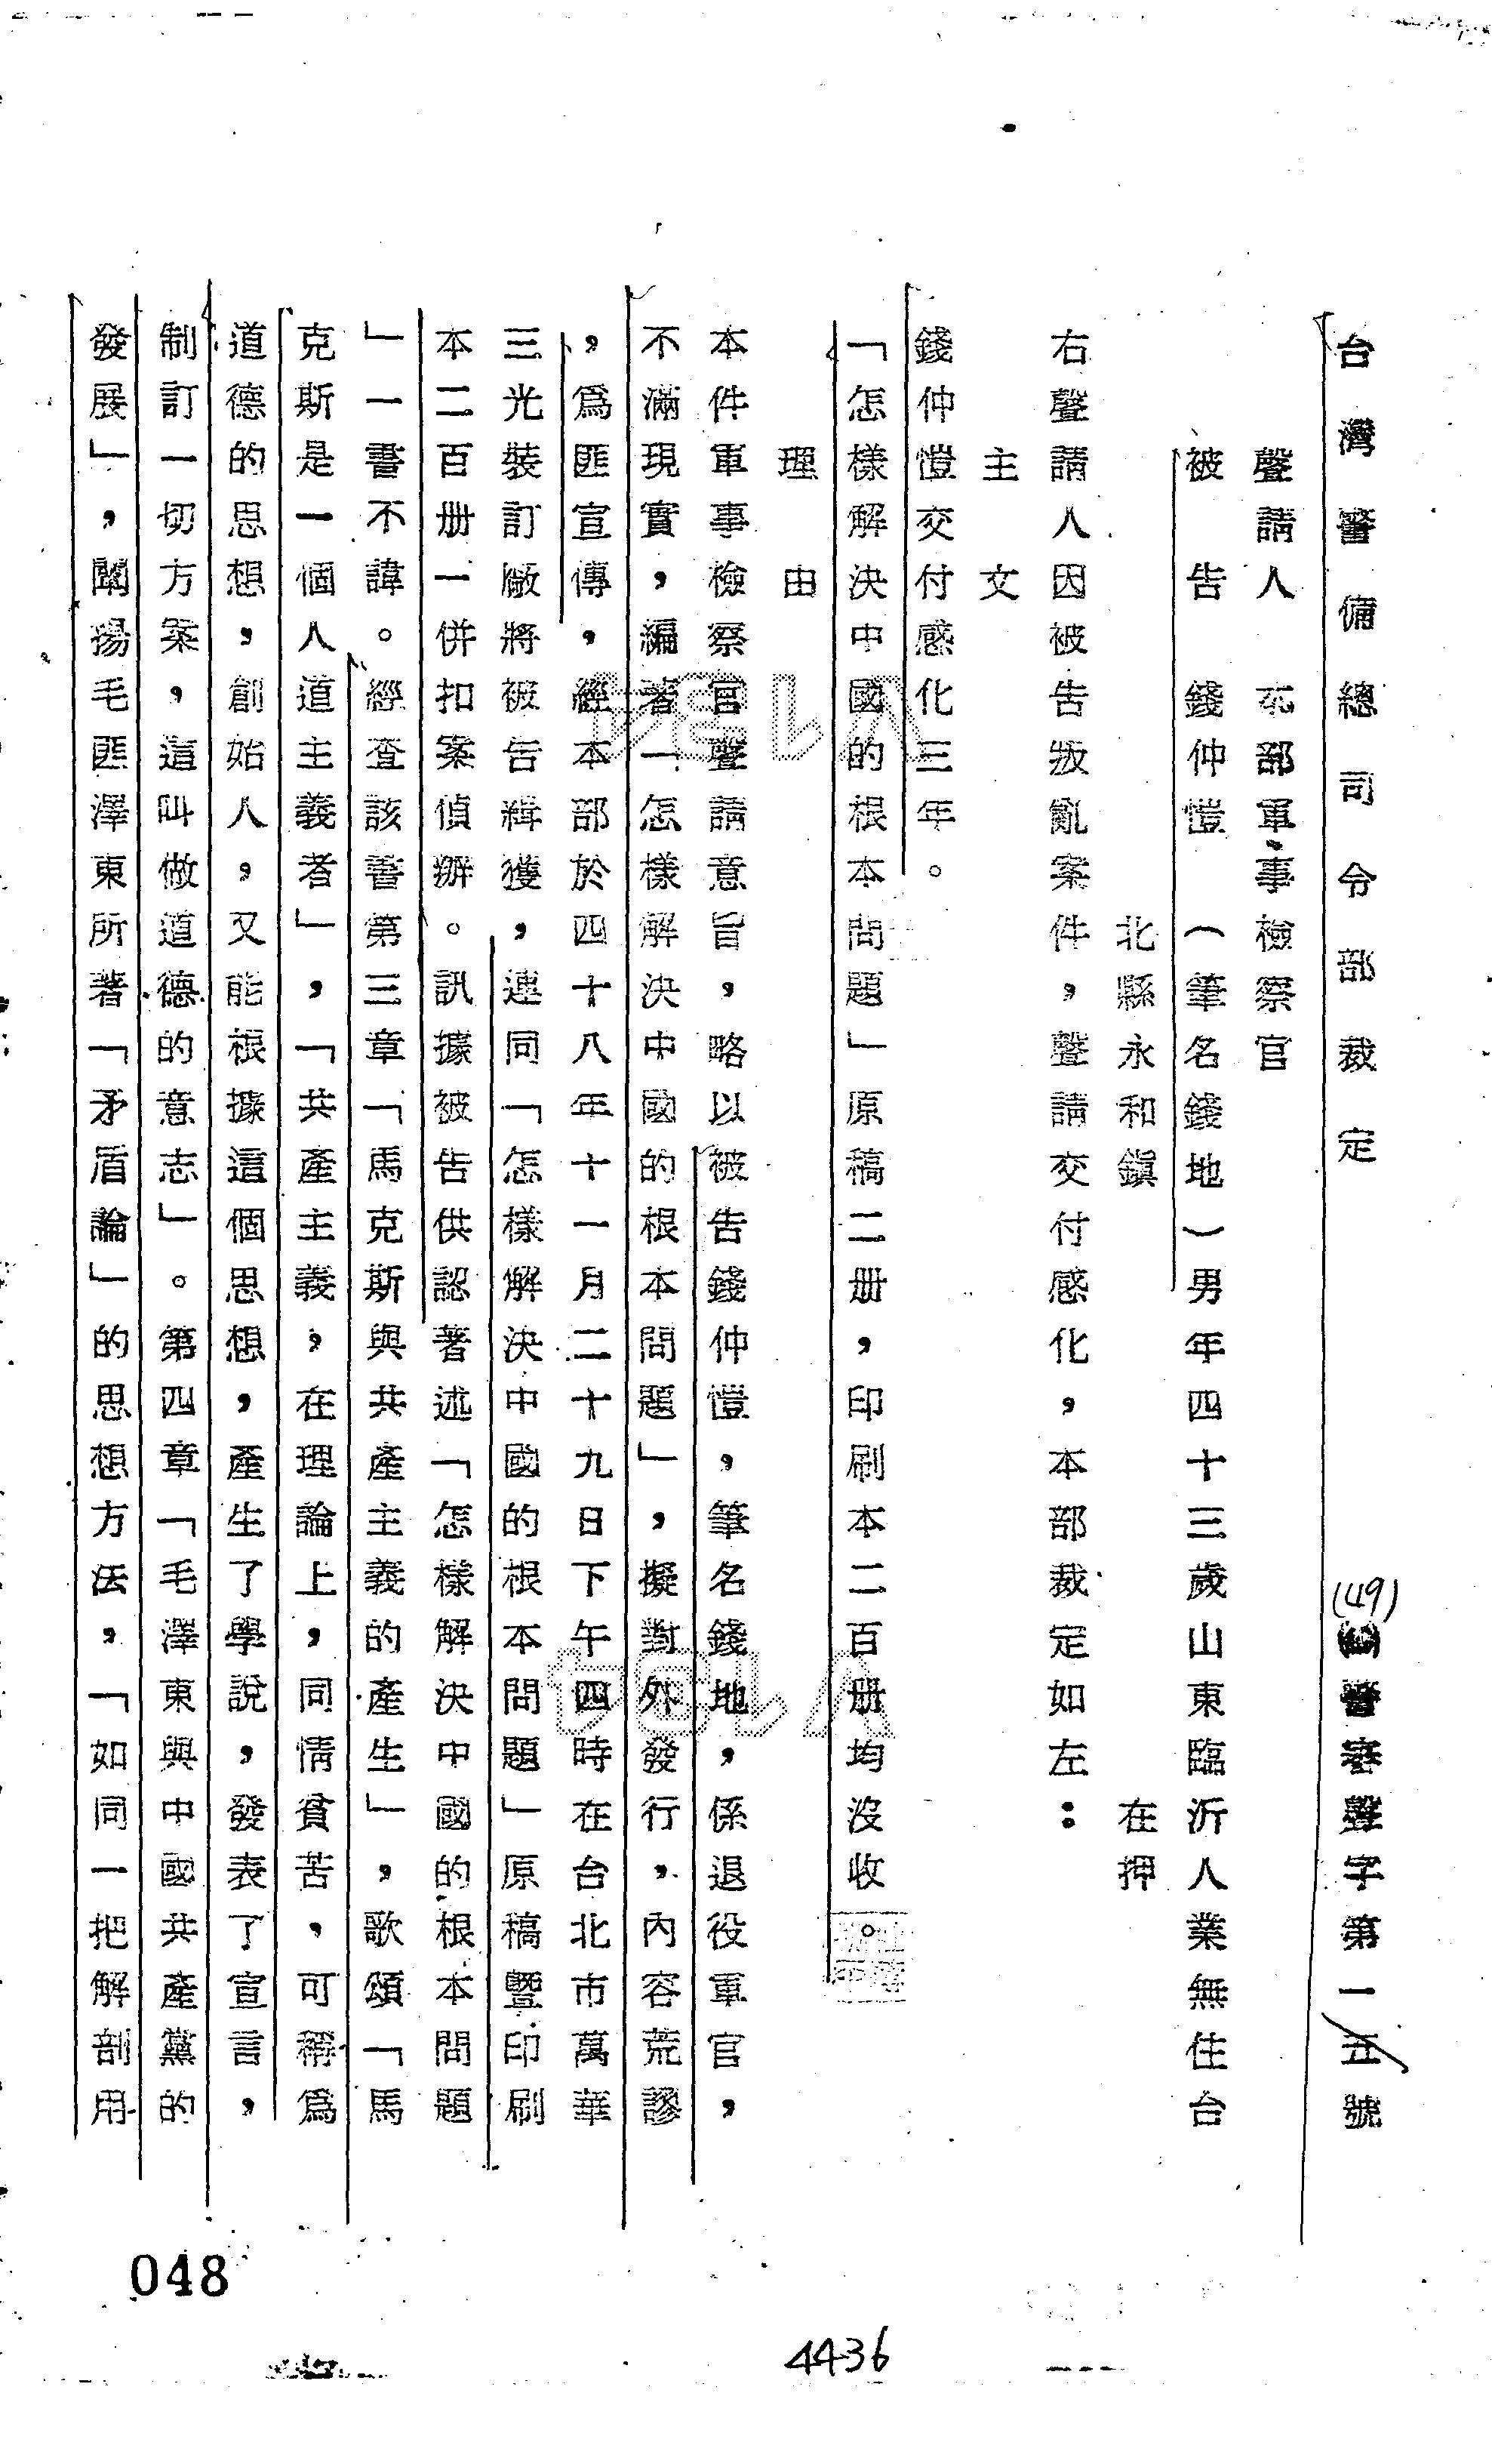 台灣警備總司令部裁定
(49)警審聲字第一五號
聲請人　本部軍事檢察官
被告　錢仲愷（筆名錢地）男年四十三歲山東臨沂人業無住台
北縣永和鎮　在押
右聲請人因被告叛亂案件，聲請交付感化，本部裁定如左：
主文
錢仲愷交付感化三年。
「怎樣解決中國的根本問題」原稿二册，印刷本二百册均沒收。
理由
本件軍事檢察官聲請意旨，略以被告錢仲愷，筆名錢地，係退役軍官，
不滿現實，編著「怎樣解決中國的根本問題」，擬對外發行，內容荒謬
，爲匪宣傳，經本部於四十八年十一月二十九日下午四時在台北市萬華
三光裝訂廠將被告緝獲，連同「怎樣解決中國的根本問題」原稿暨印刷
本二百册一併扣案偵辦。訊據被告供認著述「怎樣解決中國的根本問題
」一書不諱。經查該書第三章「馬克斯與共產主義的產生」，歌頌「馬
克斯是一個人道主義者」，「共產主義，在理論上，同情貧苦，可稱爲
道德的思想，創始人，又能根據這個思想，產生了學說，發表了宣言，
制訂一切方案，這叫做道德的意志」。第四章「毛澤東與中國共產黨的
發展」，闡揚毛匪澤東所著「矛盾論」的思想方法，「如同一把解剖用
048
4436